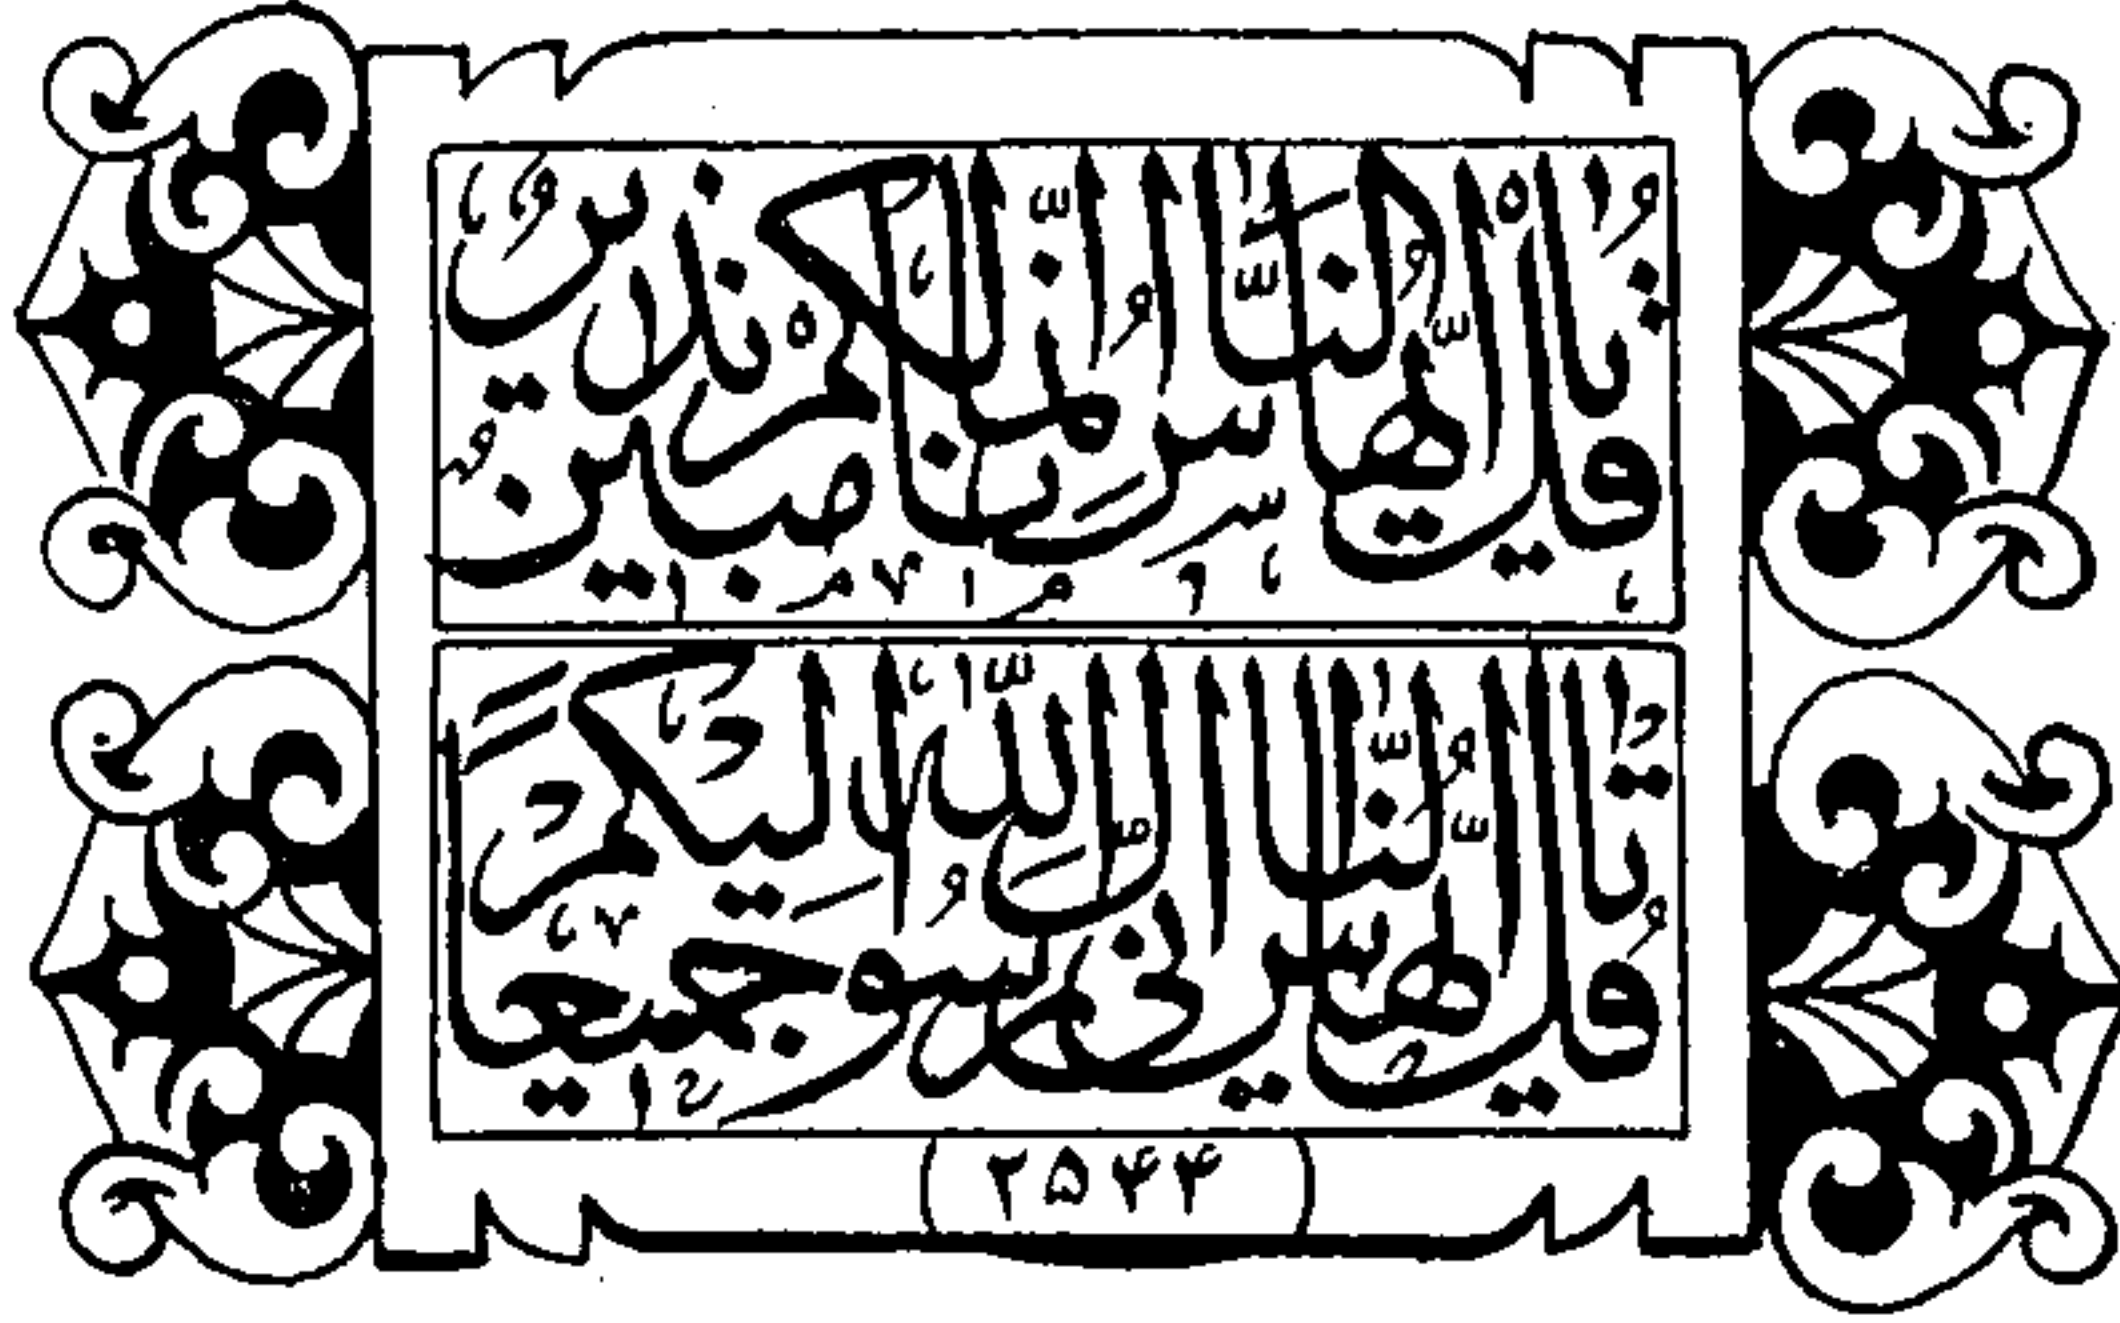 قل يا أيها الناس إنما أنا لكم نذير مبين
قل يا أيها الناس إني رسول الله إليكم جميعا
۲۵۴۴